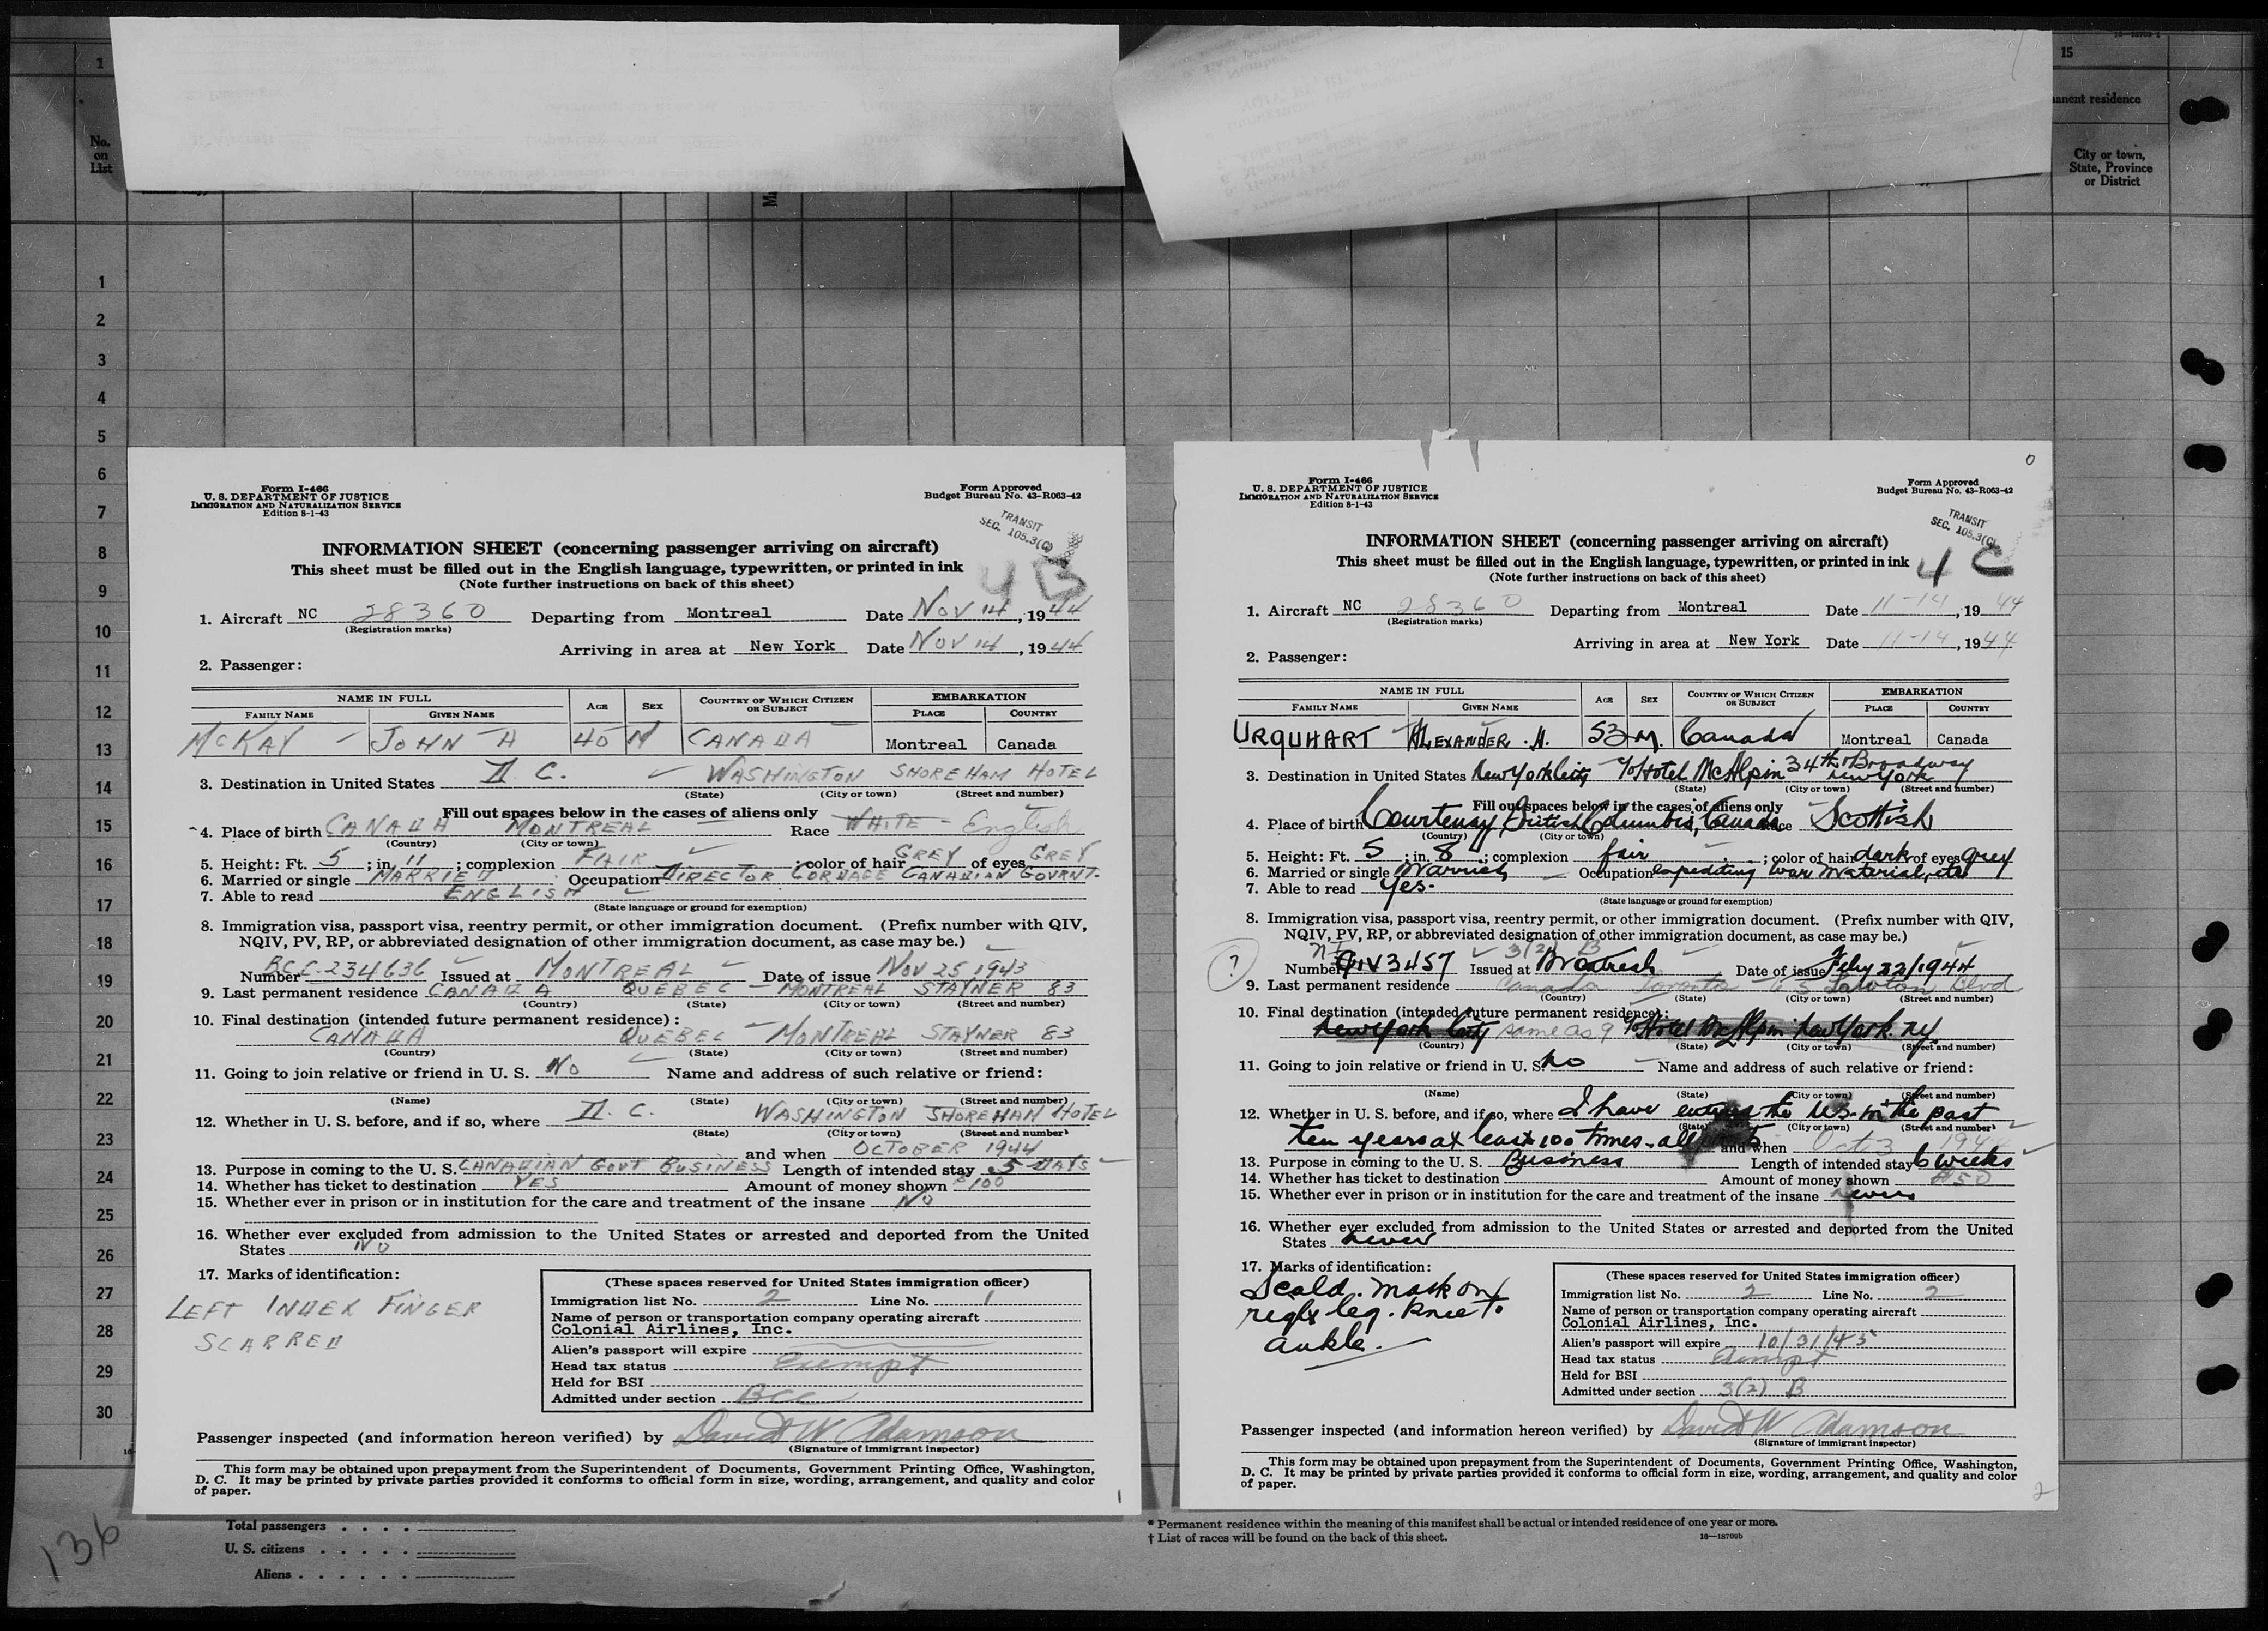 1
15
No.
on
List
anent residence
City or town,
State, Province
or District
1
2
3
4
5
6
7
8
9
10
11
12
13
14
15
16
17
18
19
20
21
22
23
24
25
26
27
28
29
30
Form I-466
U. S. DEPARTMENT OF JUSTICE
IMMIGRATION AND NATURALIZATION SERVICE
Edition 8-1-43
Form Approved
Budget Bureau No. 43-R063-42
TRANSIT
SEC. 105.3(C)
4 B
INFORMATION SHEET (concerning passenger arriving on aircraft)
This sheet must be filled out in the English language, typewritten, or printed in ink
(Note further instructions on back of this sheet)
1. Aircraft NC 28360 Departing from Montreal Date Nov 14, 1944
(Registration marks)
Arriving in area at New York Date Nov 14, 1944
2. Passenger:
NAME IN FULL AGE SEX COUNTRY OF WHICH CITIZEN OR SUBJECT EMBARKATION
FAMILY NAME GIVEN NAME PLACE COUNTRY
McKAY JOHN H 45 M CANADA Montreal Canada
3. Destination in United States D. C. WASHINGTON SHOREHAM HOTEL
(State) (City or town) (Street and number)
Fill out spaces below in the cases of aliens only
4. Place of birth CANADA MONTREAL Race WHITE English
(Country) (City or town)
5. Height: Ft. 5; in. 11; complexion FAIR; color of hair GREY of eyes GREY
6. Married or single MARRIED Occupation DIRECTOR CORDAGE CANADIAN GOVRNT.
7. Able to read ENGLISH
(State language or ground for exemption)
8. Immigration visa, passport visa, reentry permit, or other immigration document. (Prefix number with QIV,
NQIV, PV, RP, or abbreviated designation of other immigration document, as case may be.)
Number BCC-234636 Issued at MONTREAL Date of issue NOV 25 1943
9. Last permanent residence CANADA QUEBEC - MONTREAL STAYNER 83
(Country) (State) (City or town) (Street and number)
10. Final destination (intended future permanent residence):
CANADA QUEBEC - MONTREAL STAYNER 83
(Country) (State) (City or town) (Street and number)
11. Going to join relative or friend in U. S. No Name and address of such relative or friend:
(Name) (State) (City or town) (Street and number)
12. Whether in U. S. before, and if so, where D. C. WASHINGTON SHOREHAM HOTEL
(State) (City or town) (Street and number)
and when OCTOBER 1944
13. Purpose in coming to the U. S. CANADIAN GOVT BUSINESS Length of intended stay 5 DAYS
14. Whether has ticket to destination YES Amount of money shown $100
15. Whether ever in prison or in institution for the care and treatment of the insane No
16. Whether ever excluded from admission to the United States or arrested and deported from the United
States NO
17. Marks of identification:
LEFT INDEX FINGER
SCARRED
(These spaces reserved for United States immigration officer)
Immigration list No. 2 Line No. 1
Name of person or transportation company operating aircraft
Colonial Airlines, Inc.
Alien's passport will expire
Head tax status Exempt
Held for BSI
Admitted under section BCC
Passenger inspected (and information hereon verified) by David W Adamson
(Signature of immigrant inspector)
This form may be obtained upon prepayment from the Superintendent of Documents, Government Printing Office, Washington,
D. C. It may be printed by private parties provided it conforms to official form in size, wording, arrangement, and quality and color
of paper.
1
Form I-466
U. S. DEPARTMENT OF JUSTICE
IMMIGRATION AND NATURALIZATION SERVICE
Edition 8-1-43
Form Approved
Budget Bureau No. 43-R063-42
TRANSIT
SEC. 105.3(C)
4 C
INFORMATION SHEET (concerning passenger arriving on aircraft)
This sheet must be filled out in the English language, typewritten, or printed in ink
(Note further instructions on back of this sheet)
1. Aircraft NC 28360 Departing from Montreal Date 11-14, 1944
(Registration marks)
Arriving in area at New York Date 11-14, 1944
2. Passenger:
NAME IN FULL AGE SEX COUNTRY OF WHICH CITIZEN OR SUBJECT EMBARKATION
FAMILY NAME GIVEN NAME PLACE COUNTRY
URQUHART ALEXANDER . H. 53 M. Canada Montreal Canada
3. Destination in United States New York City c/o Hotel McAlpin 34th & Broadway New York
(State) (City or town) (Street and number)
Fill out spaces below in the cases of aliens only
4. Place of birth Courtenay, British Columbia, Canada Race Scottish
(Country) (City or town)
5. Height: Ft. 5; in. 8; complexion fair; color of hair dark of eyes grey
6. Married or single Married Occupation expediting war material, etc
7. Able to read Yes.
(State language or ground for exemption)
8. Immigration visa, passport visa, reentry permit, or other immigration document. (Prefix number with QIV,
NQIV, PV, RP, or abbreviated designation of other immigration document, as case may be.)
3(2) B
?
Number QIV 3457 Issued at Montreal Date of issue Feby 22/1944
9. Last permanent residence Canada Toronto 65 Lawton Blvd
(Country) (State) (City or town) (Street and number)
10. Final destination (intended future permanent residence):
New York City same as 9 c/o Hotel McAlpin New York. NY.
(Country) (State) (City or town) (Street and number)
11. Going to join relative or friend in U. S. no Name and address of such relative or friend:
(Name) (State) (City or town) (Street and number)
12. Whether in U. S. before, and if so, where I have entered the U.S. in the past
(State) (City or town) (Street and number)
ten years at least 100 times - all and when Oct 3 1944
13. Purpose in coming to the U. S. Business Length of intended stay 6 weeks
14. Whether has ticket to destination Amount of money shown $50
15. Whether ever in prison or in institution for the care and treatment of the insane never
16. Whether ever excluded from admission to the United States or arrested and deported from the United
States never
17. Marks of identification:
Scald. mark on
right leg. Knee to
ankle.
(These spaces reserved for United States immigration officer)
Immigration list No. 2 Line No. 2
Name of person or transportation company operating aircraft
Colonial Airlines, Inc.
Alien's passport will expire 10/31/45
Head tax status Exempt
Held for BSI
Admitted under section 3(2) B
Passenger inspected (and information hereon verified) by David W Adamson
(Signature of immigrant inspector)
This form may be obtained upon prepayment from the Superintendent of Documents, Government Printing Office, Washington,
D. C. It may be printed by private parties provided it conforms to official form in size, wording, arrangement, and quality and color
of paper.
2
136
Total passengers . . . .
U. S. citizens . . . . .
Aliens . . . . . .
* Permanent residence within the meaning of this manifest shall be actual or intended residence of one year or more.
† List of races will be found on the back of this sheet.
16—18709b